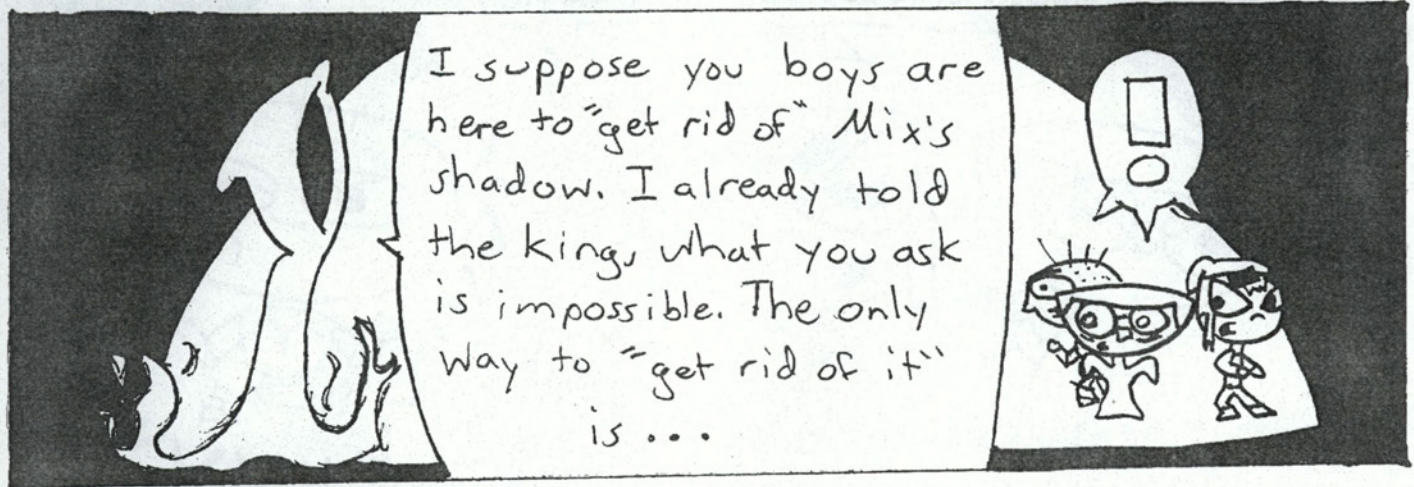 I suppose you boys are
here to "get rid of" Mix's
shadow. I already told
the king, what you ask
is impossible. The only
way to "get rid of it"
is...
!